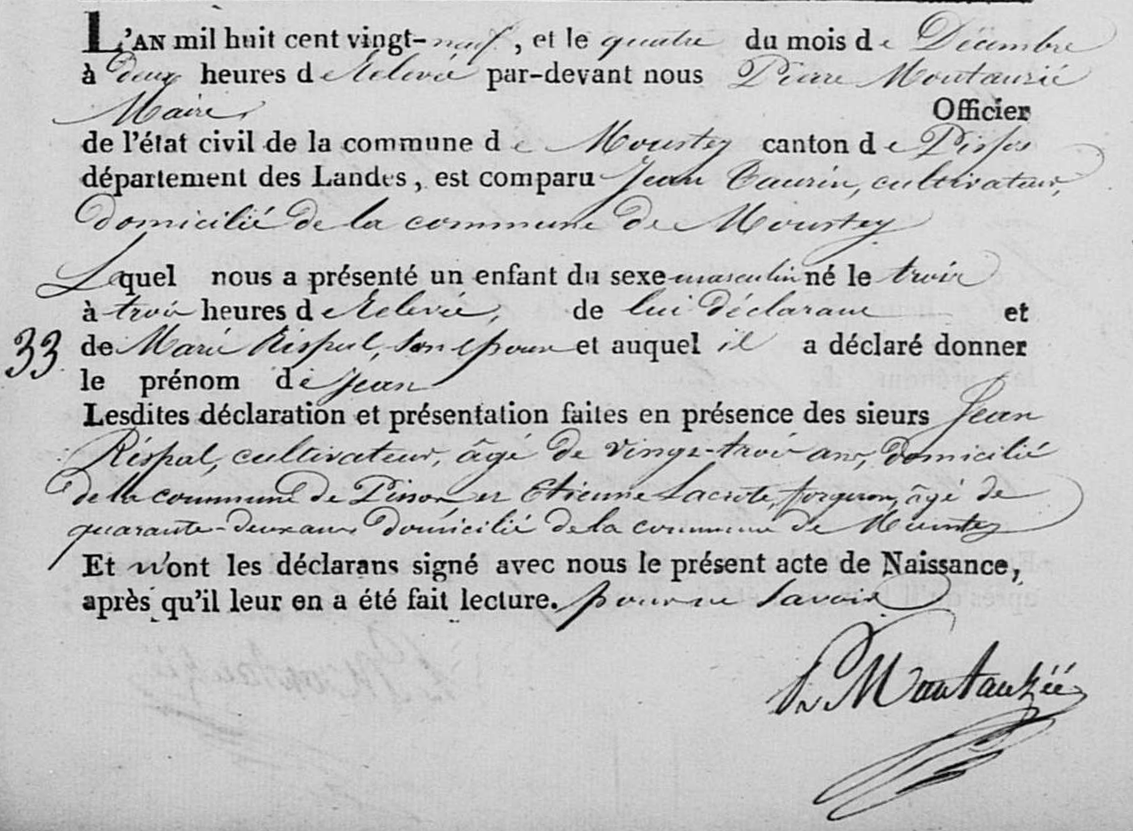 L'AN mil huit cent vingt-neuf, et le quatre du mois de Décembre
à deux heures de Relevée par-devant nous Pierre Montauzié
Maire, Officier
de l'état civil de la commune de Moustey canton de Pissos
département des Landes, est comparu Jean Taurin, cultivateur,
domicilié de la commune de Moustey
Lequel nous a présenté un enfant du sexe masculin né le trois
à trois heures de Relevée, de lui déclarant et
33 de Marie Rispal, son épouse et auquel il a déclaré donner
le prénom de Jean
Lesdites déclaration et présentation faites en présence des sieurs Jean
Rispal, cultivateur, âgé de vingt-trois ans, domicilié
de la commune de Pissos et Etienne Lacrote, forgeron, âgé de
quarante-deux ans domicilié de la commune de Moustey
Et n'ont les déclarans signé avec nous le présent acte de Naissance,
après qu'il leur en a été fait lecture. pour ne savoir
Montauzié